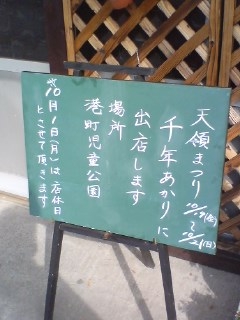 天領まつり 10/19(金)〜10/21(日)
千年あかりに
出店します
場所
港町児童公園
※10月1日(月)は店休日
とさせて頂きます